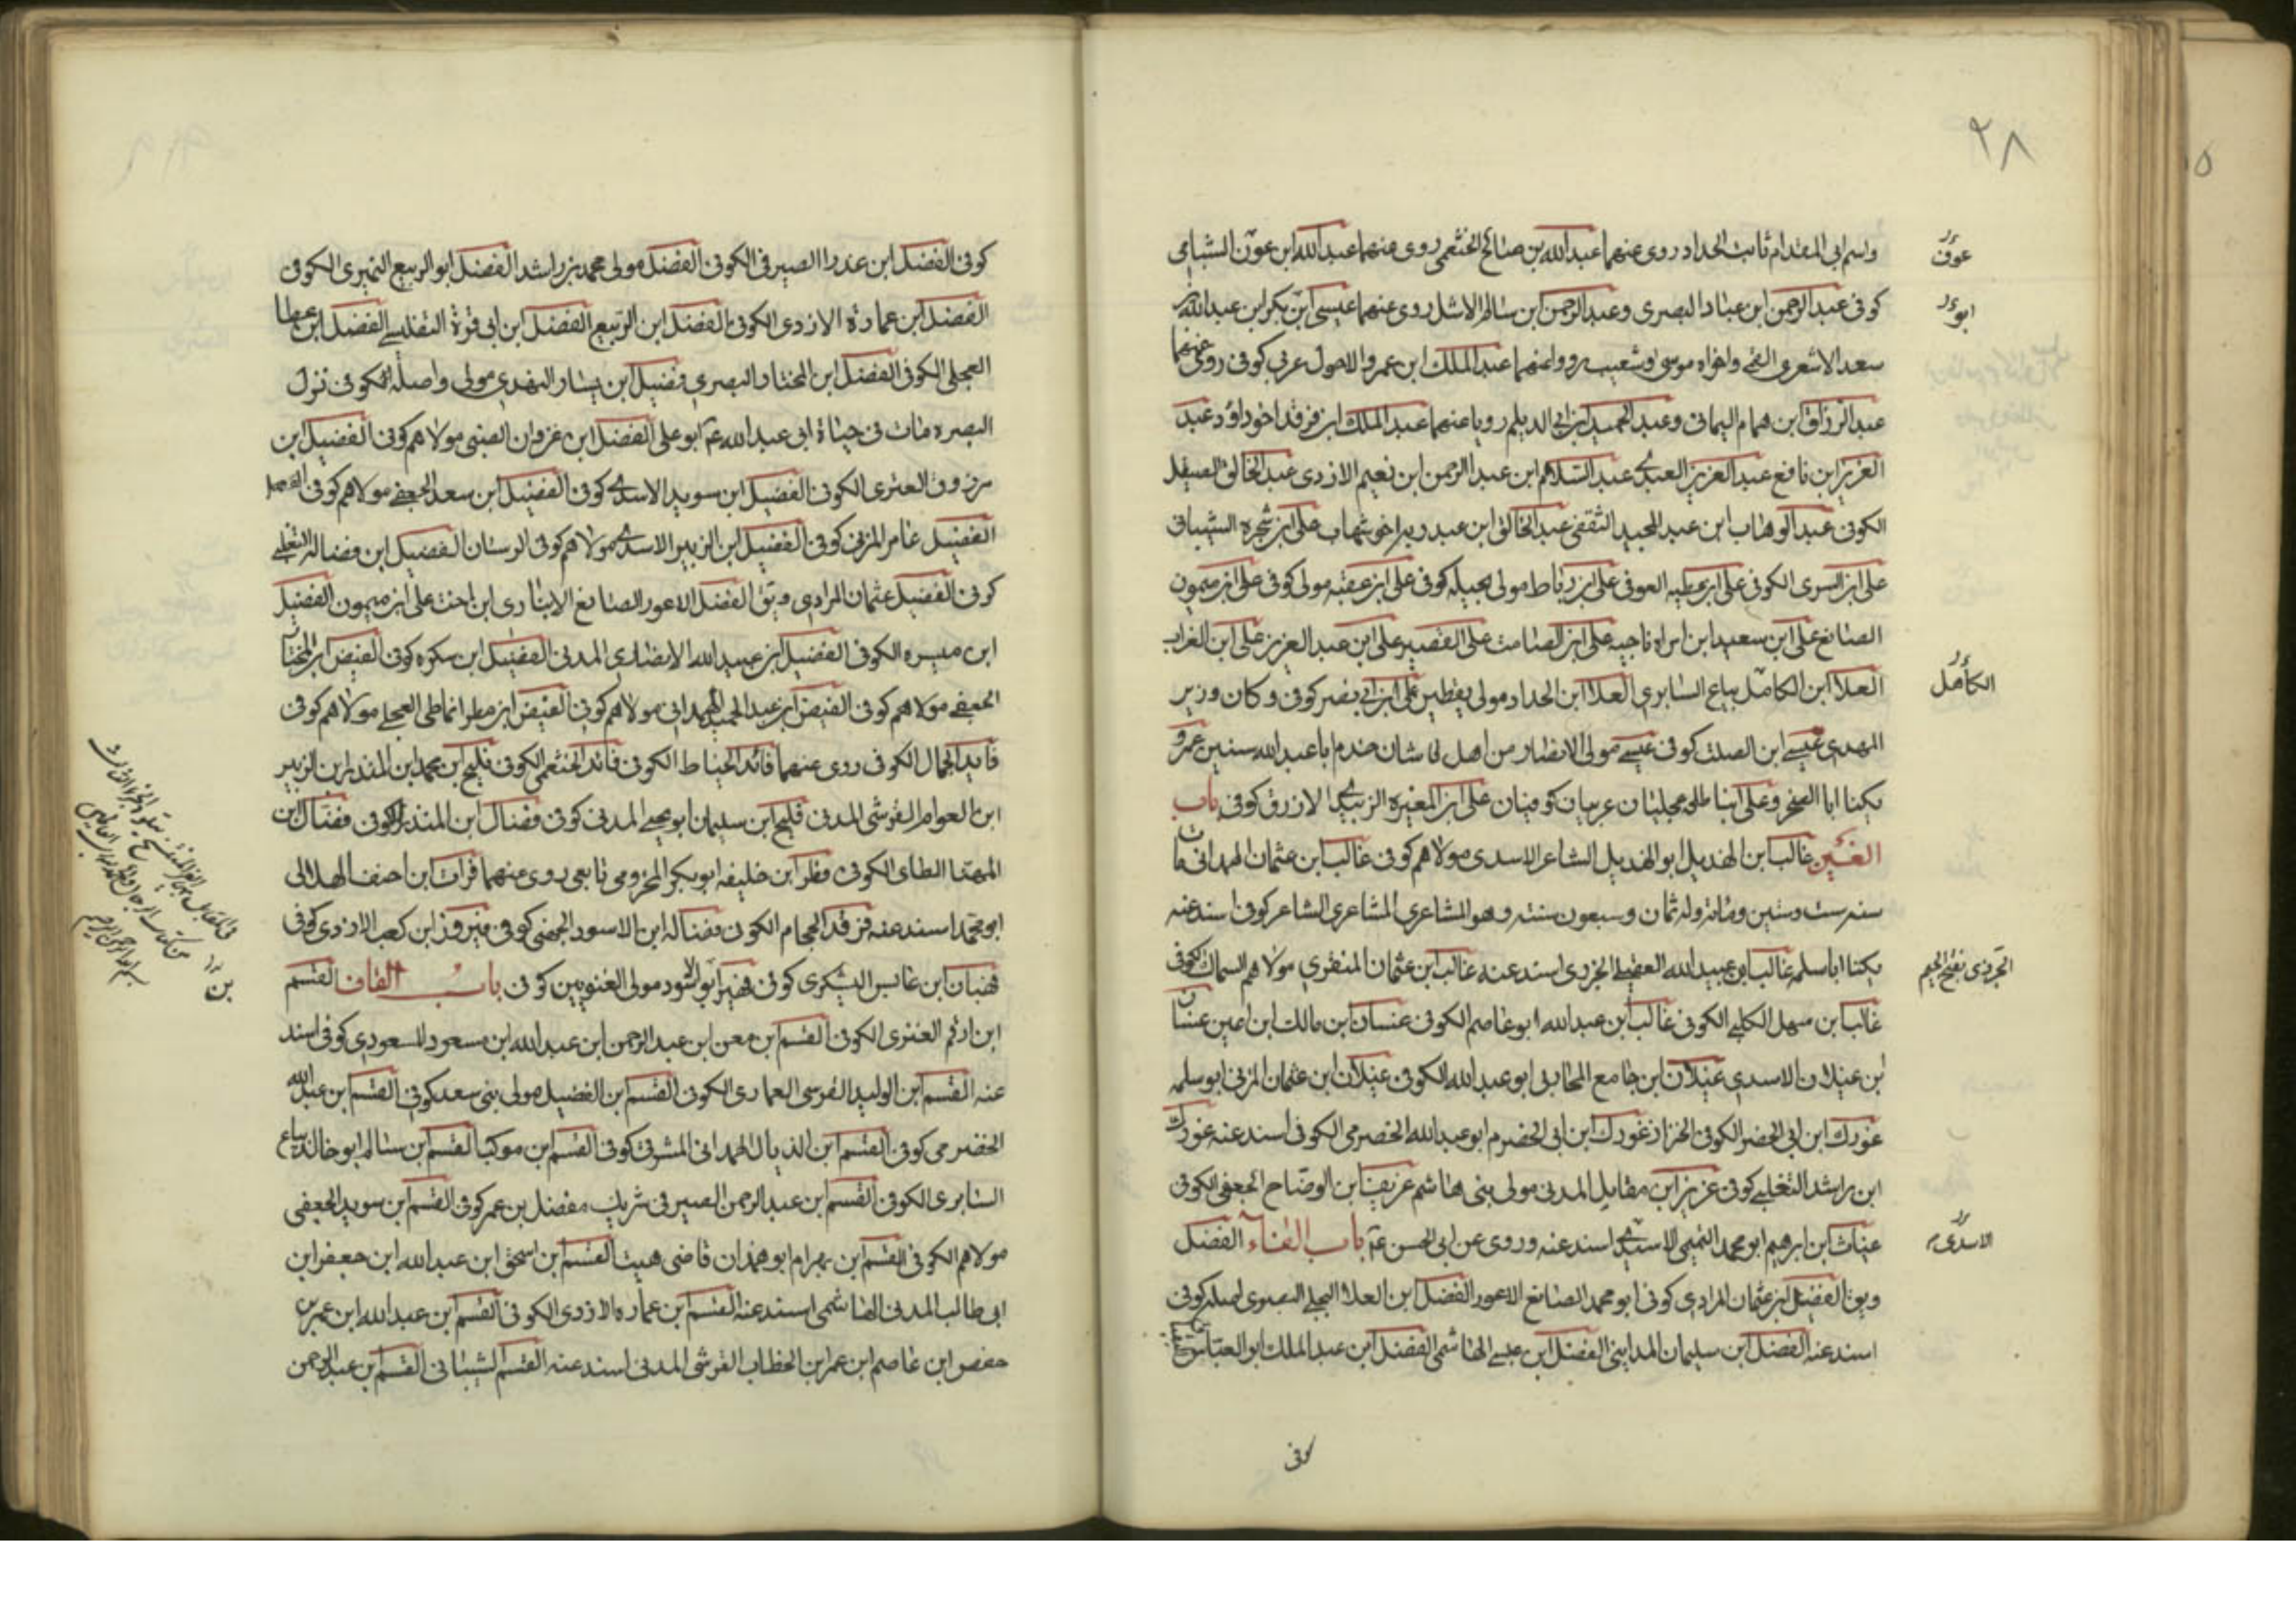 ٢٨
واسم ابي المقدام ثابت الحداد روى عنهما عبدالله بن صالح الخثعمي روى عنهما عبدالله ابن عون الشبامي
عون
كوفى عبد الرحمن ابن عباد البصرى وعبد الرحمن ابن سالم الاشل روى عنهما عيسى ابن بكر ابن عبدالله
سعد الاشعرى القمى واخواه موسى وشعيب رووا عنهما عبد الملك ابن عمرو الاحول عربى كوفى روى عنهما
عبد الرزاق ابن همام اليمانى وعبد الحميد ابن ابى الديلم رويا عنهما عبد الملك ابن فرقد اخو داود عبد
العزيز ابن نافع عبد العزيز العبدى عبد السلام ابن عبد الرحمن ابن نعيم الازدى عبد الخالق الصيقل
الكوفى عبد الوهاب ابن عبد المجيد الثقفى عبد الخالق ابن عبد ربه اخو شهاب على ابن شجره الشيبانى
على ابن السرى الكوفى على ابن عطيه العوفى على ابن رباط مولى بجيله كوفى على ابن عقبه مولى كوفى على ابن ميمون
الصائغ على ابن سعيد ابن امراه ناجيه على ابن الصامت على القصير على ابن عبد العزيز على ابن الغراب
العلا ابن الكامل بياع السابرى العلا ابن الحداد مولى يقطين على ابن ابى نصر كوفى وكان وزير
الكامل
المهدى عيسى ابن الصلت كوفى عيسى مولى الانصار من اهل شان خدم ابا عبد الله سنين عمرو
يكنا ابا الصخر وعلى ابنا عجليان عربيان كوفيان على ابن المغيره الزبيدى الازرق كوفى باب
الغين غالب ابن الهذيل ابو الهذيل الشاعر الاسدى مولاهم كوفى غالب ابن عثمان الهمدانى مات
سنه ست وستين ومائة وله ثمان وسبعون سنته وهو المشاعرى الشاعر كوفى اسند عنه
يكنا ابا سلمه غالب ابن عبيد الله العقيلى الجزرى اسند عنه غالب ابن عثمان المنقرى مولاهم السمان الكوفى
الجزرى بفتح الجيم
غالب ابن سهل الكلبى الكوفى غالب ابن عبدالله ابو عاصم الكوفى غسان ابن مالك ابن اعين غسان
ابن غيلان الاسدى غيلان ابن جامع المحاربى ابو عبد الله الكوفى غيلان ابن عثمان المزنى ابو سلمه
غورك ابن ابى الخضر الكوفى الخزاز غورك ابن ابى الخضرم ابو عبد الله الخضرمى الكوفى اسند عنه غورك
ابن راشد التغلبى كوفى عزيز ابن مقابل المدنى مولى بنى هاشم غريف ابن الوضاح الجعفى الكوفى
غياث ابن ابرهيم ابو محمد التميمى الاسيدى اسند عنه وروى عن ابى الحسن ع باب الفاء الفضل
الاسدى
وبق الفضل ابن عثمان المرادى كوفى ابو محمد الصائغ الاعور الفضل ابن العلا البجلى البصرى كوفى
اسند عنه الفضل ابن سليمان المداينى الفضل ابن عيسى الهاشمى الفضل ابن عبد الملك ابو العباس
كوفى
كوفى الفضل ابن الصيرفى الكوفى الفضل مولى محمد بن راشد الفضل ابو الربيع النميرى الكوفى
الفضل ابن عماره الازدى الكوفى الفضل ابن الربيع الفضل ابن ابى قرة التفليسى الفضل ابن عطا
العجلى الكوفى الفضل ابن المختار البصرى فضيل ابن يسار النهدى مولى واصله الكوفى نزل
البصره مات فى حياة ابى عبد الله ع ابو على الفضل ابن غزوان الضبى مولاهم كوفى الفضيل ابن
مرزوق العنزى الكوفى الفضيل ابن سويد الاسدى كوفى الفضيل ابن سعد الجعفى مولاهم كوفى
الفضيل عامر المزنى كوفى الفضيل ابن الزبير الاسدى مولاهم كوفى الرسان الفضيل ابن فضاله التغلبى
كوفى الفضيل عثمان المرادى ويق الفضل الاعور الصائغ الانبارى ابن اخت على ابن ميمون الفضيل
ابن ميسره الكوفى الفضيل ابن عبيد الله الانصارى المدنى الفضيل ابن سكره كوفى الفيض ابن المختار
الجعفى مولاهم كوفى الفيض ابن عبد الحميد الهمدانى مولاهم كوفى الفيض ابن مطر انماطى العجلى مولاهم كوفى
فايد الجمال الكوفى روى عنهما فائد الحناط الكوفى فائد الخثعمى الكوفى فليح ابن محمد ابن المنذر ابن الزبير
ابن العوام القرشى المدنى فليح ابن سليمان ابو يحيى المدنى كوفى فضال ابن المنذر الكوفى فضال ابن
الطاى الكوفى فطر ابن خليفه ابو بكر المخزومى تابعى روى عنهما فرات ابن احنف الهلالى
ابو محمد اسند عنه فرقد الحجام الكوفى فضاله ابن الاسود الجهنى كوفى فيروز ابن كعب الازدى كوفى
ابن عابس اليشكرى كوفى ابو الاسود مولى الغنويين كوفى باب القاف القسم
ابن ارقم العنزى الكوفى القسم بن معن ابن عبد الرحمن ابن عبد الله ابن مسعود المسعودى كوفى اسند
عنه القسم ابن الوليد القرسى العمارى الكوفى القسم بن الفضيل مولى بنى سعد كوفى القسم بن عبد الله
الحضرمى كوفى القسم ابن الذيال الهمدانى المشرقى كوفى القسم ابن موكبا القسم بن سالم ابو خالد بياع
السابرى الكوفى القسم ابن عبد الرحمن الصيرفى شريك مفضل بن عمر كوفى القسم بن سويد الجعفى
مولاهم الكوفى القسم ابن بهرام ابو همدان قاضى هيت القسم بن اسحق ابن عبد الله ابن جعفر ابن
ابى طالب المدنى الهاشمى اسند عنه القسم بن عماره الازدى الكوفى القسم بن عبد الله ابن عمر بن
حفص ابن عاصم ابن عمر ابن الخطاب القرشى المدنى اسند عنه القسم الشيبانى القسم بن عبد الرحمن